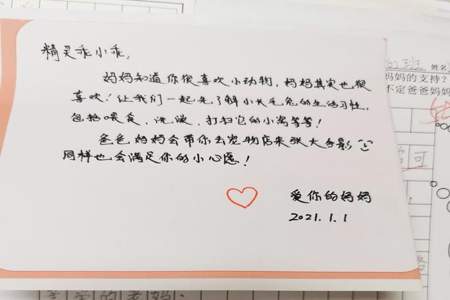 精灵乖小乖,
妈妈知道你很喜欢小动物,妈妈其实也很
喜欢!让我们一起先了解小长毛兔的生活习性,
包括喂食、洗澡、打扫它的小窝等等!
爸爸妈妈会带你去宠物店来张大合影
同样也会满足你的小心愿!
爱你的妈妈
2021.1.1
姓名
妈妈的支持?
不定爸爸妈
可